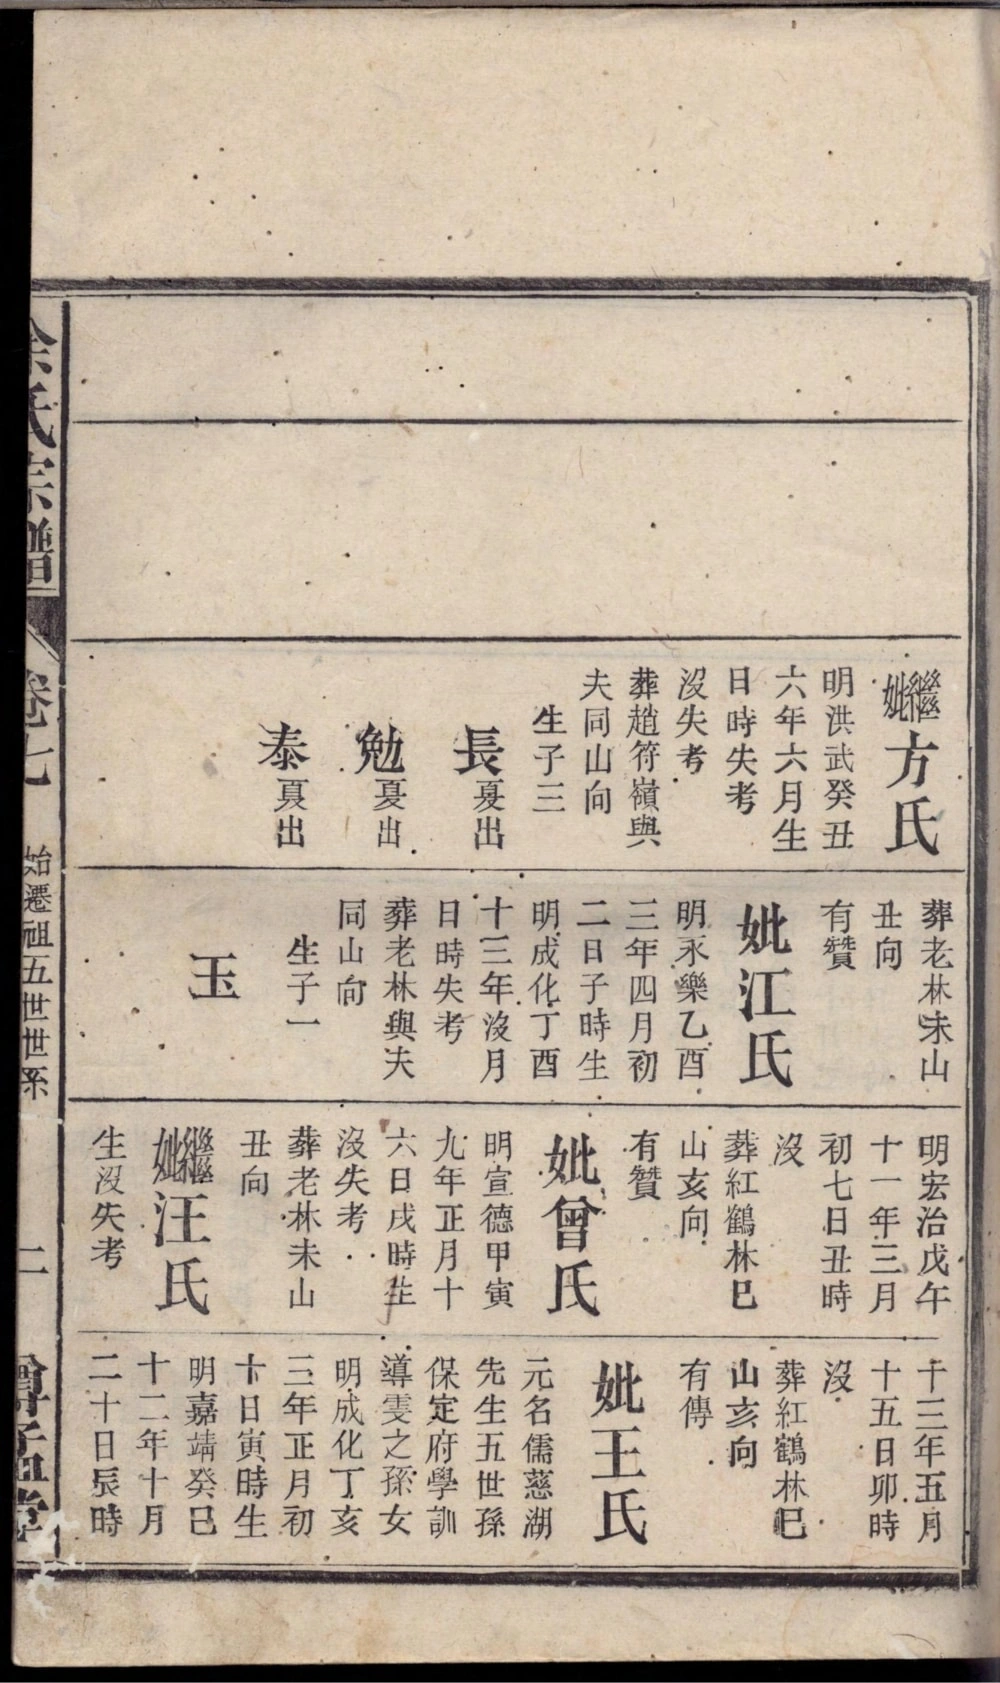 繼妣方氏
明洪武癸丑
六年六月生
日時失考
沒失考
葬趙符嶺與
夫同山向
生子三
長戛出
勉戛出
泰戛出
葬老林未山
丑向
有贊
妣江氏
明永樂乙酉
三年四月初
二日子時生
明成化丁酉
十三年沒月
日時失考
葬老林與夫
同山向
生子一
玉
明宏治戊午
十一年三月
初七日丑時
沒
葬紅鶴林巳
山亥向
有贊
妣曾氏
明宣德甲寅
九年正月十
六日戌時生
沒失考
葬老林未山
丑向
繼妣汪氏
生沒失考
十三年五月
十五日卯時
沒
葬紅鶴林巳
山亥向
有傳
妣王氏
元名儒慈湖
先生五世孫
保定府學訓
導雯之孫女
明成化丁亥
三年正月初
十日寅時生
明嘉靖癸巳
十二年十月
二十日辰時
余氏宗譜
卷七
始遷祖五世世系
二